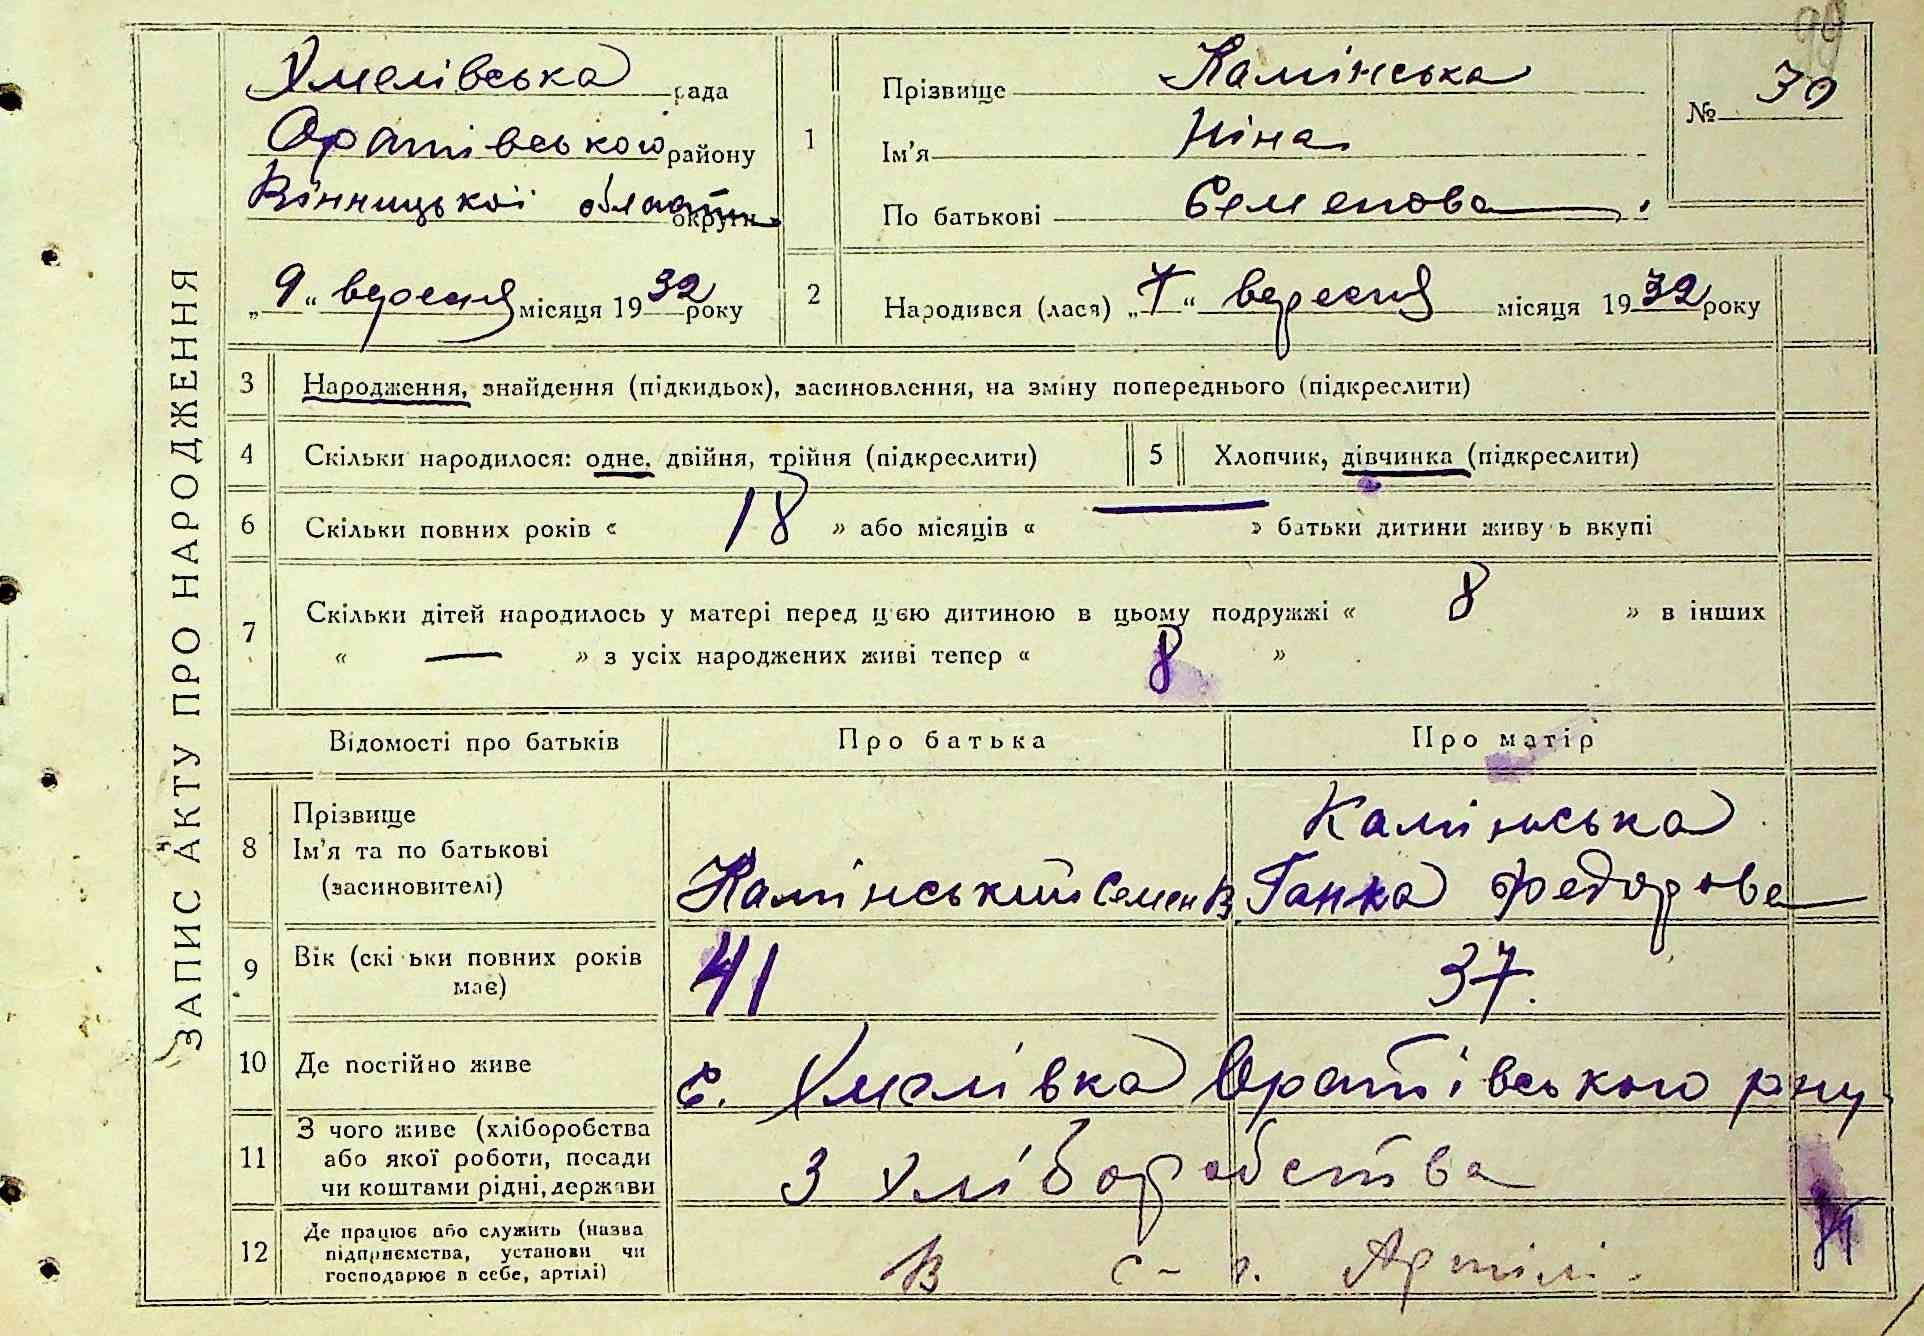 99
ЗАПИС АКТУ ПРО НАРОДЖЕННЯ
Хмелівська рада
Оратівського району
Вінницької области округи
„9“ вересня місяця 1932 року
1
Прізвище Камінська
Ім'я Ніна
По батькові Семенова
№ 30
2
Народився (лася) „7“ вересня місяця 1932 року
3 Народження, знайдення (підкидьок), засиновлення, на зміну попереднього (підкреслити)
4 Скільки народилося: одне, двійня, трійня (підкреслити)
5 Хлопчик, дівчинка (підкреслити)
6 Скільки повних років « 18 » або місяців « — » батьки дитини живу ь вкупі
7 Скільки дітей народилось у матері перед цією дитиною в цьому подружжі « 8 » в інших
« — » з усіх народжених живі тепер « 8 »
Відомості про батьків Про батька Про матір
8
Прізвище
Ім'я та по батькові
(засиновителі)
Камінський Семен В.
Камінська
Ганка Федорова
9 Вік (скі ьки повних років
має)
41
37.
10 Де постійно живе с. Хмелівка Оратівського р-ну
11
З чого живе (хліборобства
або якої роботи, посади
чи коштами рідні, держави
З хліборобства
12
Де працює або служить (назва
підприємства, установи чи
господарює в себе, артілі)
В с-г. Артілі.